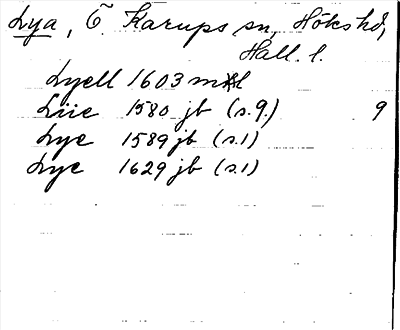 Lya, Ö Karups sn, Höks hd,
Hall. l.
Lyell 1603 mtl
Liie 1580 jb (s. 9.) 9
Lye 1589 jb (s. 1)
Lye 1629 jb (s. 1)